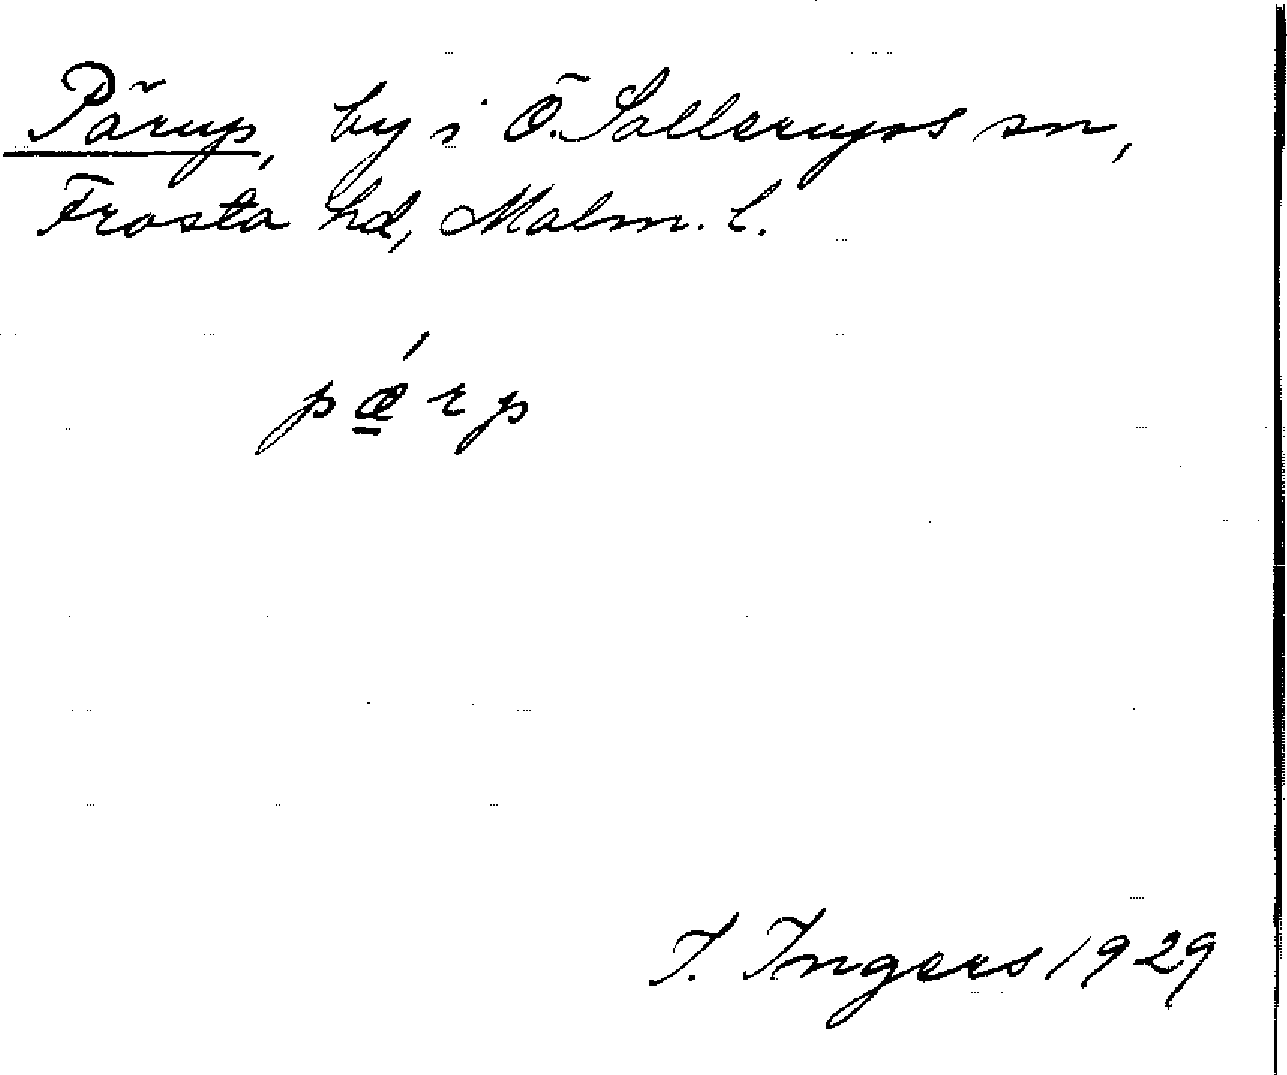 Pärup, by i Ö. Sallerups sn,
Frosta hd, Malm. l.
pǽ̱rp
I. Ingers 1929